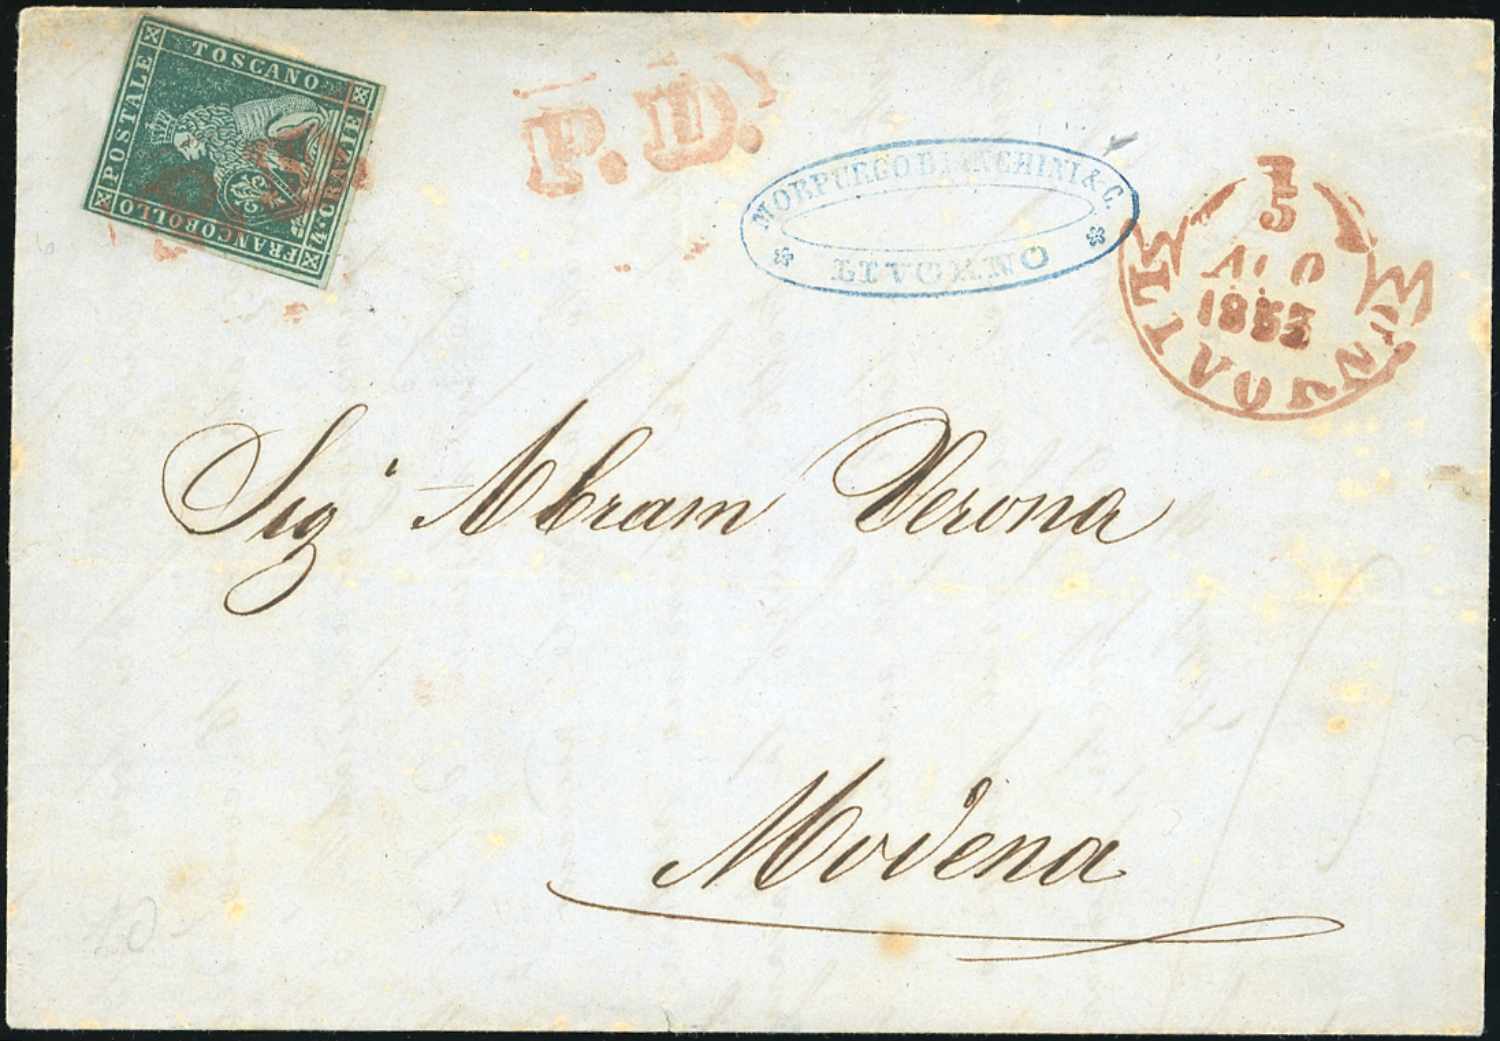 FRANCOBOLLO
POSTALE
TOSCANO
4.CRAZIE
P.D.
P.D.
MORPURGO BIANCHINI & C.
LIVORNO
LIVORNO
15
AGO
1853
Sig.r Abram Verona
Modena